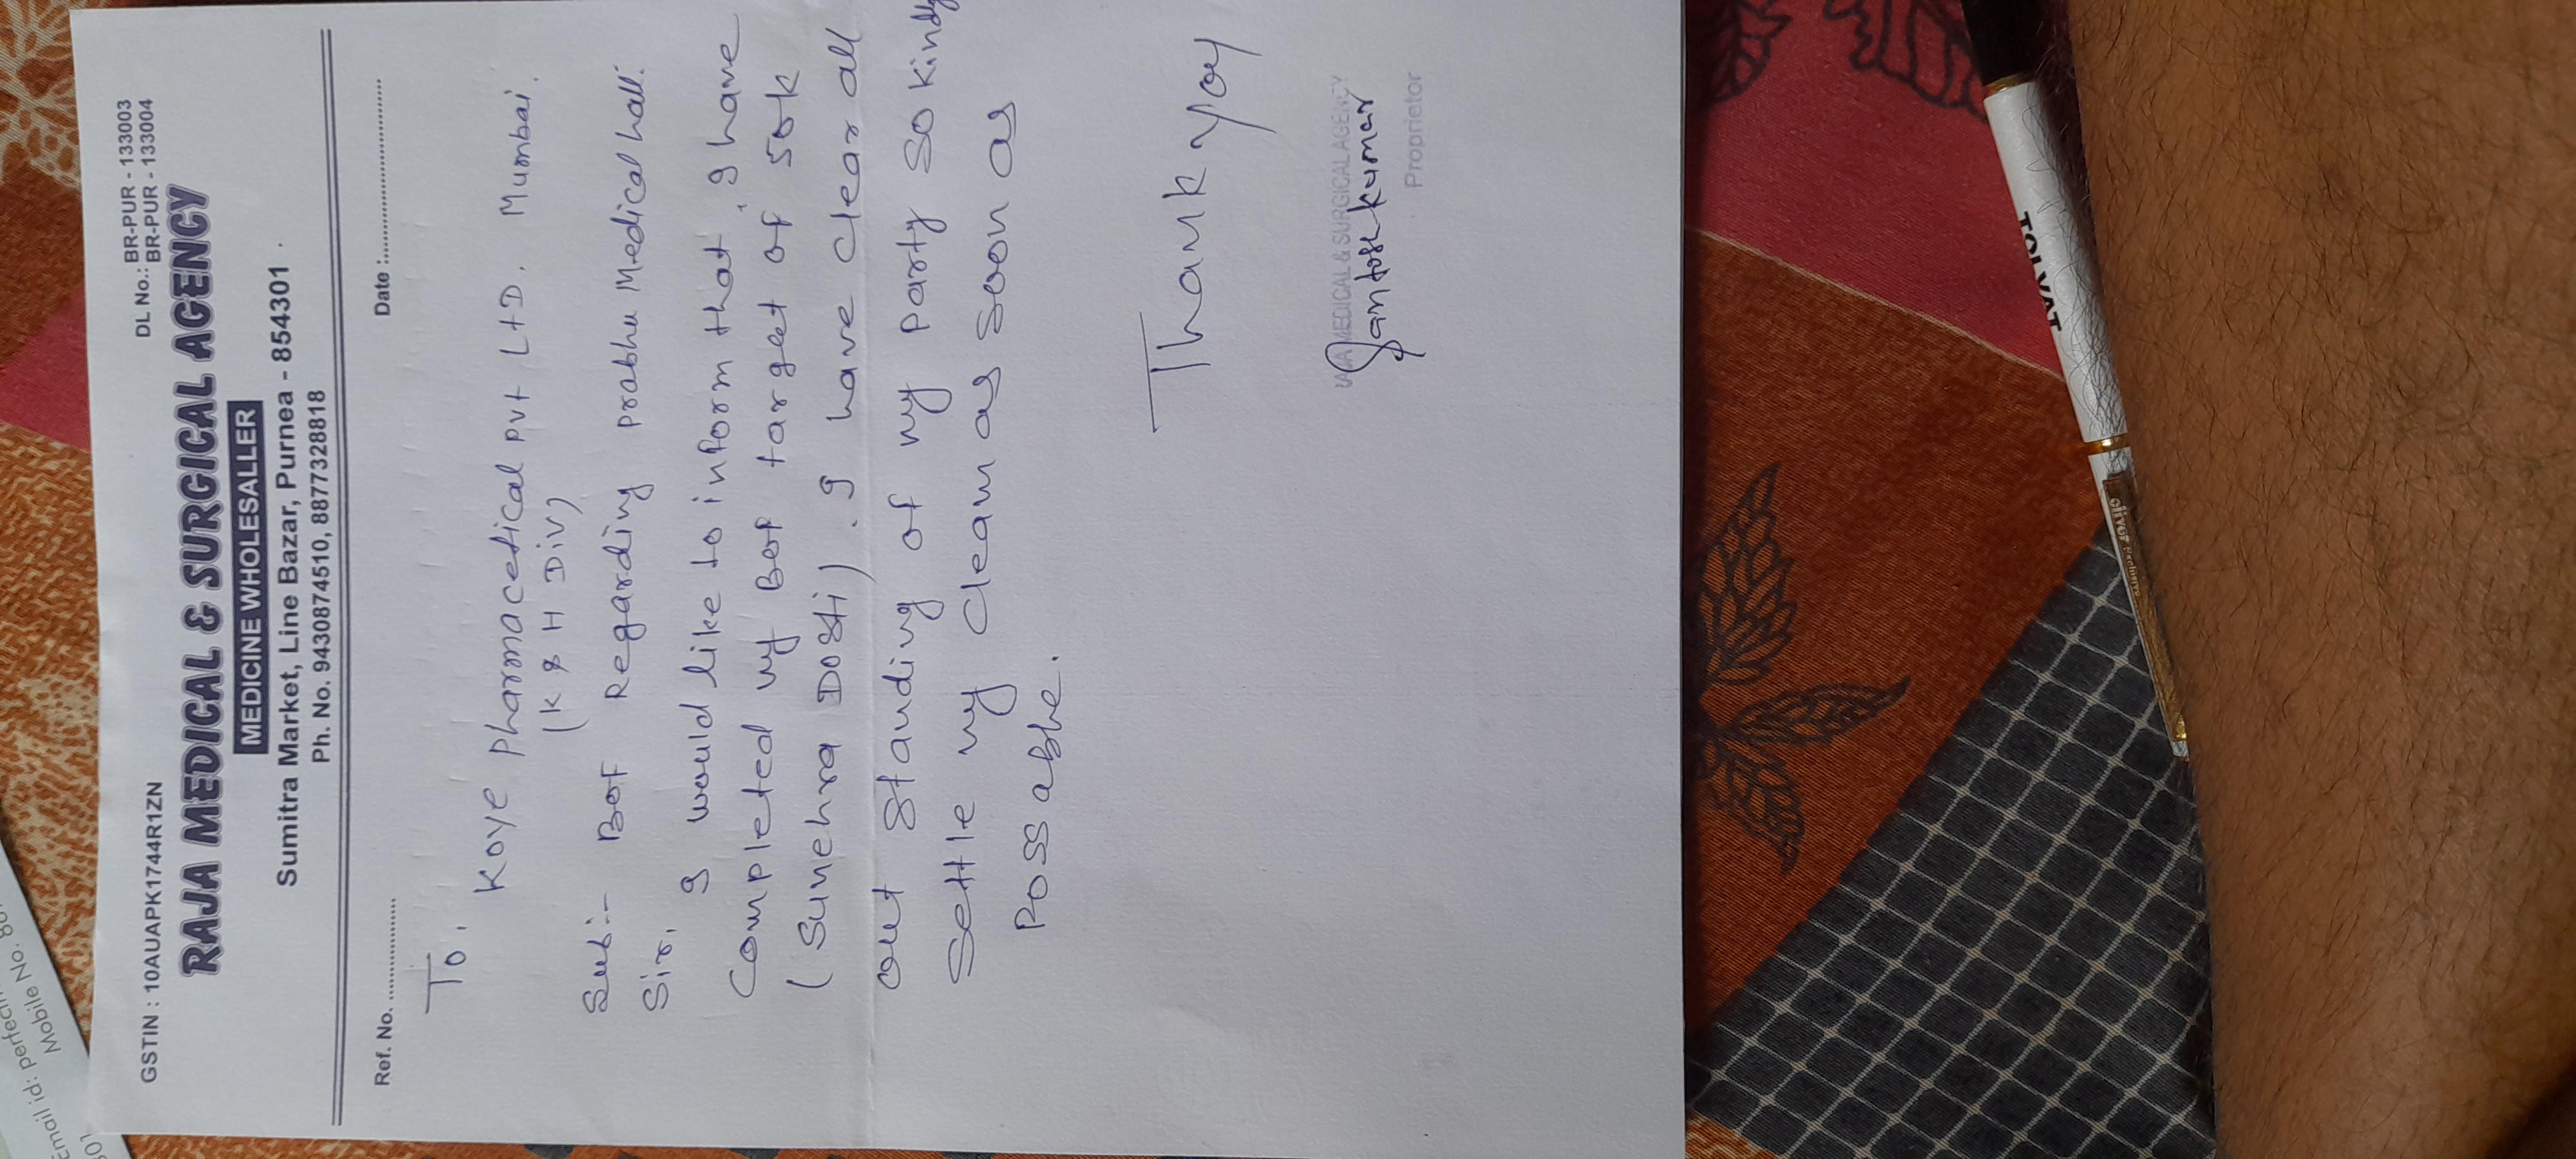 GSTIN : 10AUAPK1744R1ZN
DL No.: BR-PUR - 133003
BR-PUR - 133004
RAJA MEDICAL & SURGICAL AGENCY
MEDICINE WHOLESALLER
Sumitra Market, Line Bazar, Purnea - 854301
Ph. No. 9430874510, 8877328818
Ref. No. ..................
Date :..........................
To,
Koye Pharmacetical Pvt LtD. Mumbai.
(K & H Div)
Sub:- BOF Regarding prabhu Medical hall.
Sir,
I would like to inform that, I have
Completed my BOF target of 50k
(Sunehra Dosti). I have clear all
out standing of my party so kindly
settle my cleam as soon as
Possable.
Thank you
MEDICAL & SURGICAL AGENCY
Santosh kumar
Proprietor
Email id: perfect
Mobile No. 80